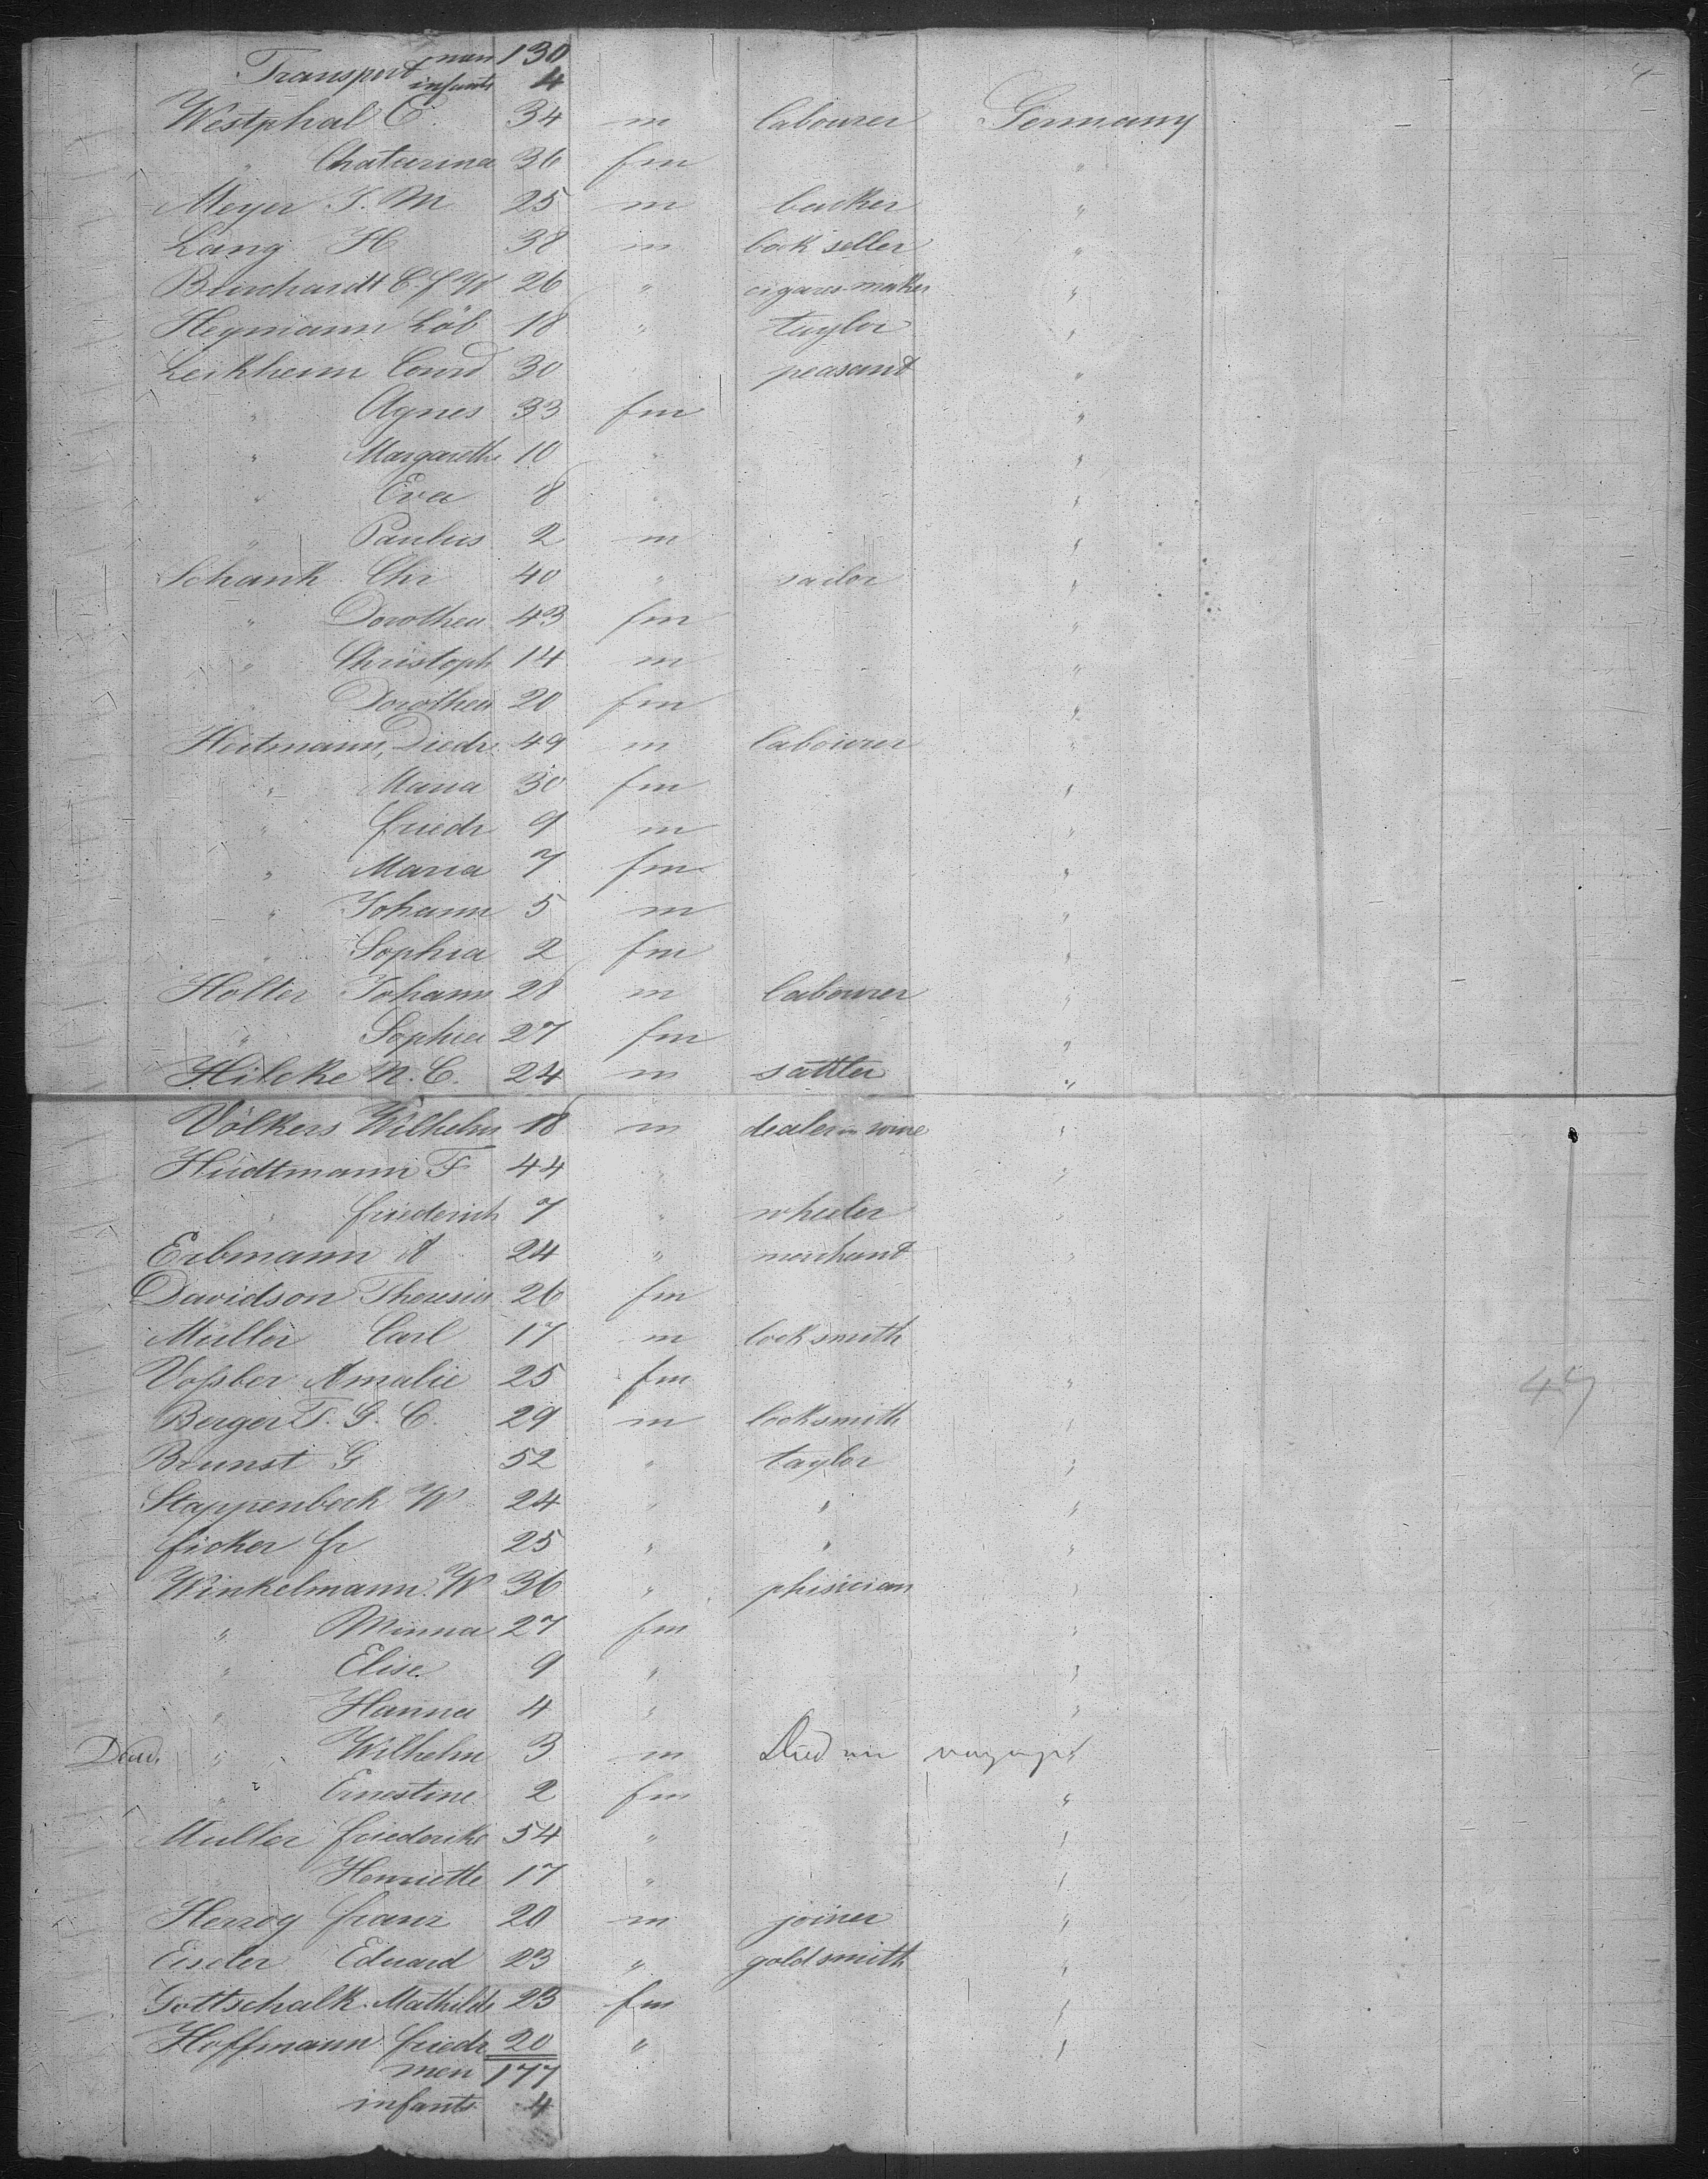 Transport men 130
infants 4
Westphal C. 34 m labourer Germany
" Chatarina 36 fm "
Meyer J. M 25 m backer "
Lang H 38 m book seller "
Burchardt C. f W 26 " cigares-maker "
Heymann Löb 18 " taylor "
Leikheim Conrd 30 peasant "
" Agnes 33 fm "
" Margareth 10 " "
" Eva 8 " "
" Paulus 2 m "
Schank Chr 40 " sailor "
" Dorothea 43 fm "
" Christoph 14 m "
" Dorothea 20 fm "
Heitmann, Diedr. 49 m labourer "
" Maria 30 fm "
" friedr 9 m "
" Maria 7 fm "
" Johann 5 m "
" Sophia 2 fm "
Holter Johann 28 m labourer "
" Sophia 27 fm "
Hilcke N. C. 24 m sattler "
Völkers Wilhelm 18 m dealer in wine "
Hudtmann F 44 " "
" friederich 7 " wheeler "
Erbmann A 24 " merchant "
Davidson Theresia 26 fm "
Müller Carl 17 m lock smith "
Voßber Amalie 25 fm "
47
Berger F. G. C. 29 m locksmith "
Brunst G 52 " taylor "
Stappenbeck W 24 " " "
ficker fr 25 " " "
Winkelmann W 36 " phisician "
" Minna 27 fm "
" Elise 9 " "
" Hanna 4 " "
Dead " Wilhelm 3 m Died on voyage "
" Ernestine 2 fm "
Muller friederike 54 " "
" Henriette 17 " "
Herzog franz 20 m joiner "
Eiseler Eduard 23 " goldsmith "
Gottschalk Mathilde 23 fm "
Hoffmann friedr 20 " "
men 177
infants 4